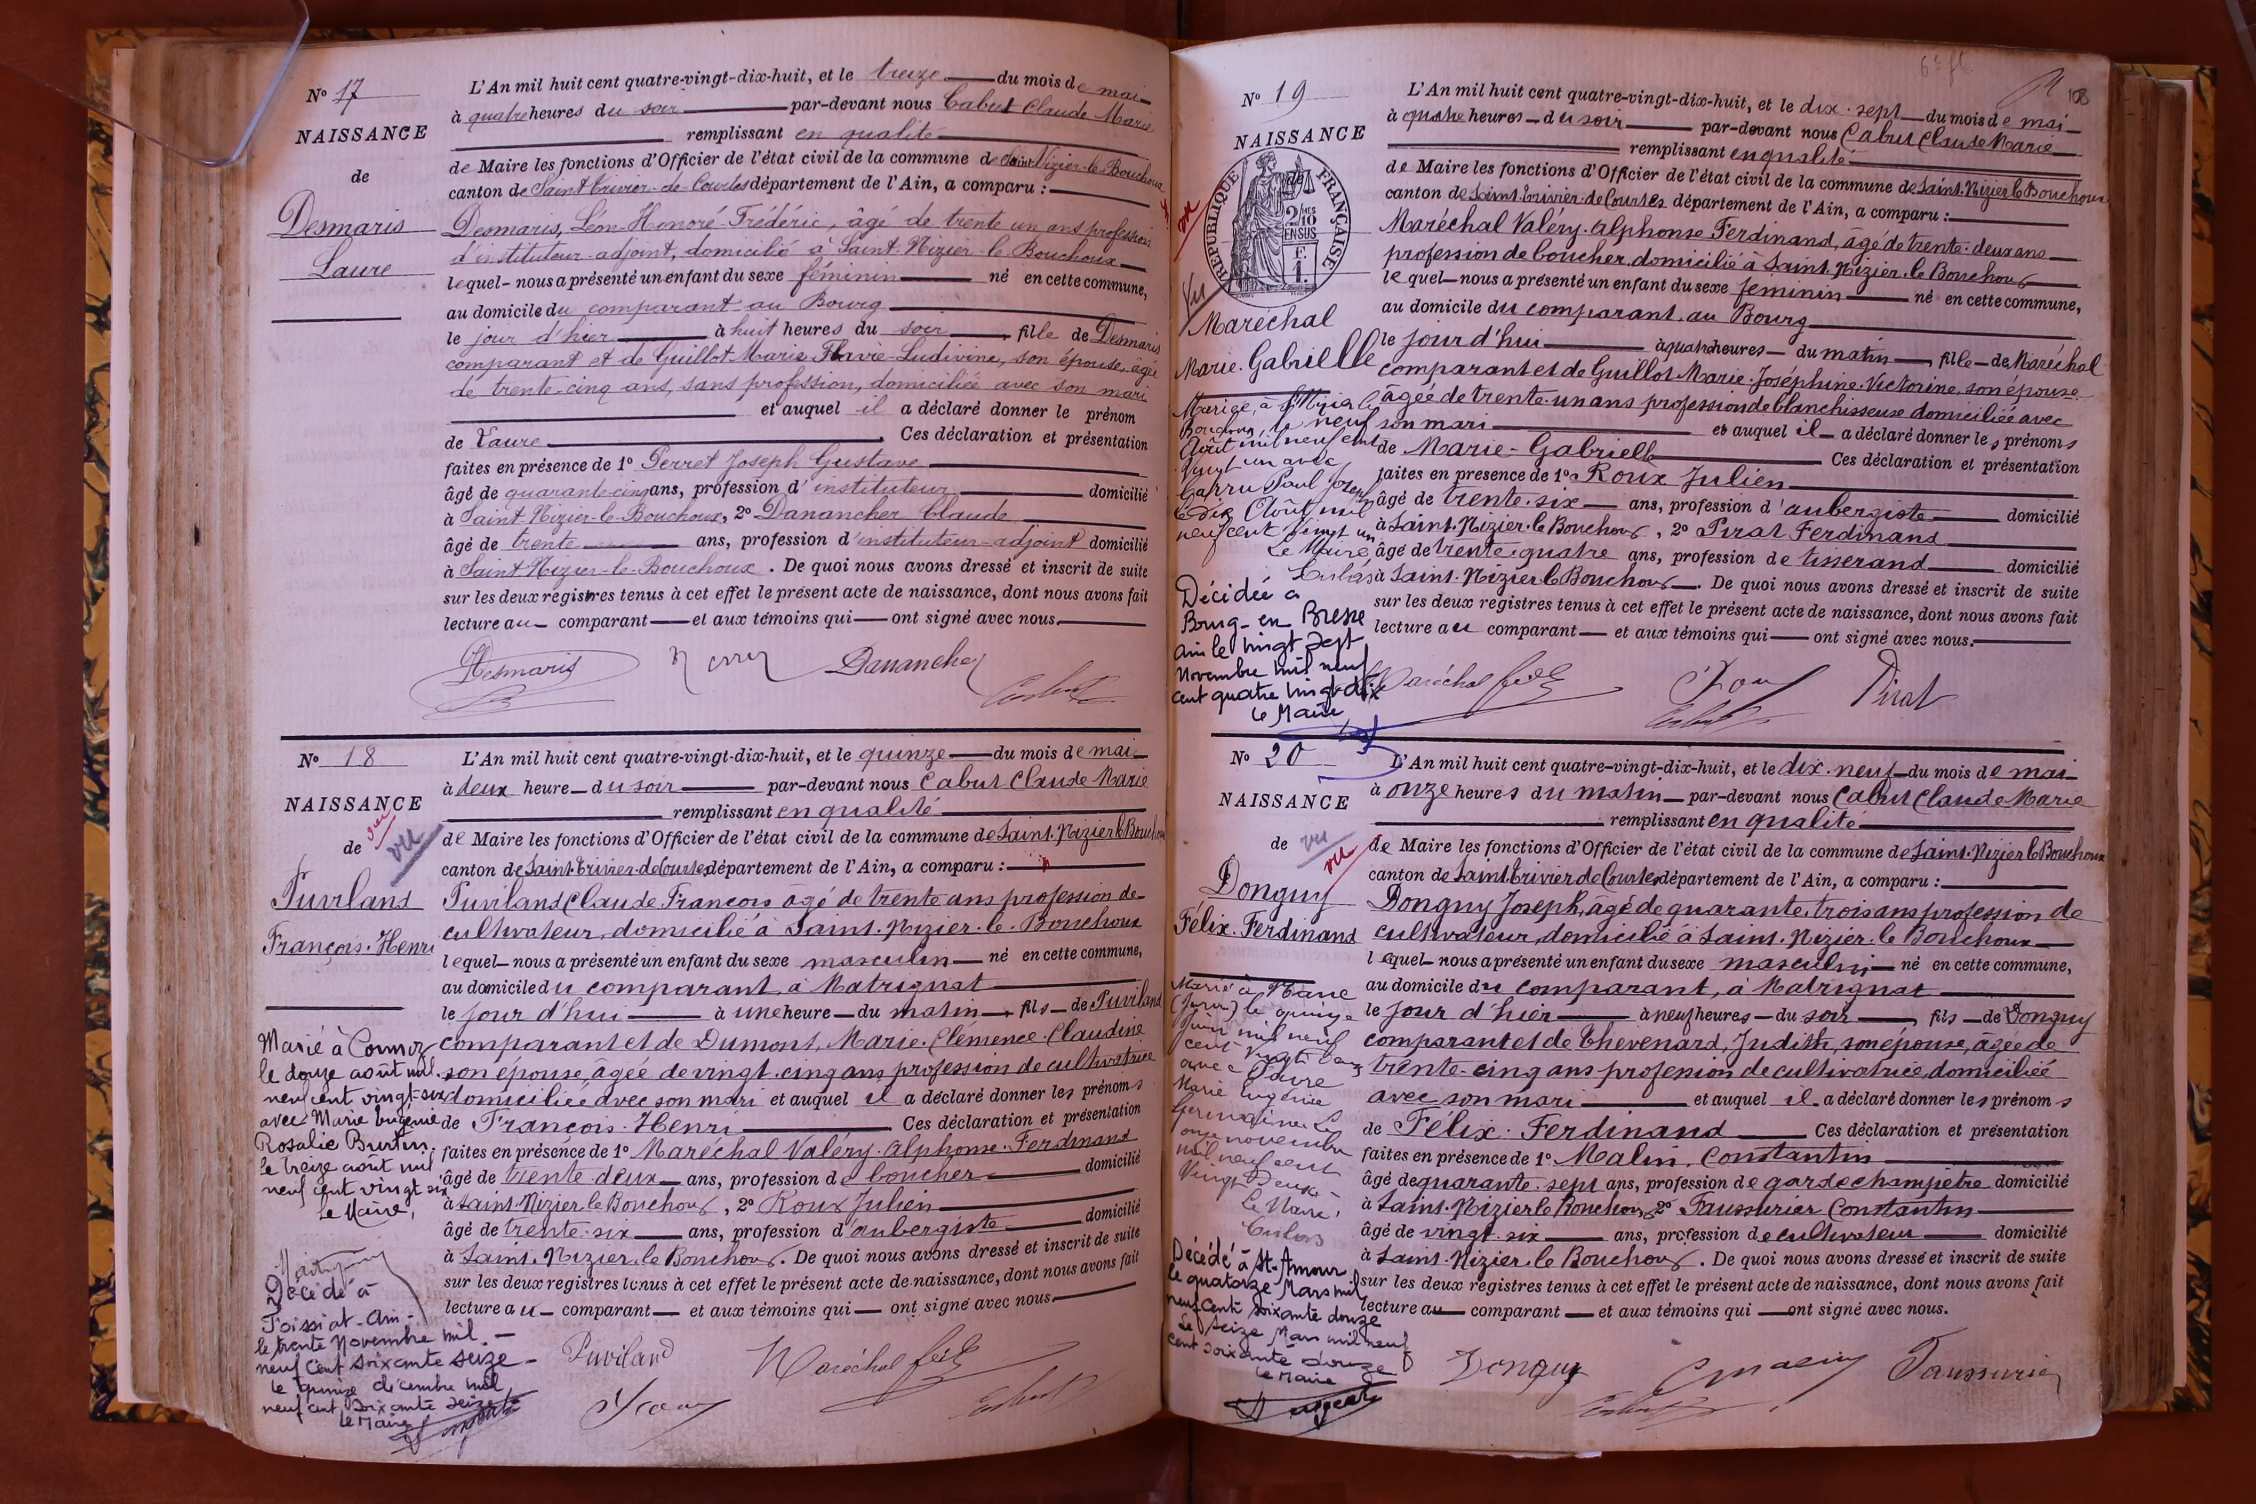 N° 17
NAISSANCE
de
Desmaris
Laure
L'An mil huit cent quatre-vingt-dix-huit, et le treize du mois de mai
à quatre heures du soir par-devant nous Cabut Claude Marie
remplissant en qualité
de Maire les fonctions d'Officier de l'état civil de la commune de Saint-Nizier-le-Bouchoux
canton de Saint-Trivier-de-Courtes département de l'Ain, a comparu :
Desmaris, Léon-Honoré-Frédéric, âgé de trente un ans profession
d'instituteur-adjoint, domicilié à Saint-Nizier-le-Bouchoux
lequel nous a présenté un enfant du sexe féminin né en cette commune,
au domicile du comparant au Bourg
le jour d'hier à huit heures du soir, fille de Desmaris
comparant et de Guillot Marie Flavie-Ludivine, son épouse, âgée
de trente-cinq ans, sans profession, domiciliée avec son mari
et auquel il a déclaré donner le prénom
de Laure. Ces déclaration et présentation
faites en présence de 1° Perret Joseph Gustave
âgé de quarante-cinq ans, profession d'instituteur domicilié
à Saint-Nizier-le-Bouchoux, 2° Danancher Claude
âgé de trente ans, profession d'instituteur-adjoint domicilié
à Saint-Nizier-le-Bouchoux. De quoi nous avons dressé et inscrit de suite
sur les deux registres tenus à cet effet le présent acte de naissance, dont nous avons fait
lecture au comparant et aux témoins qui ont signé avec nous.
Desmaris Perret Danancher
Cabut
N° 18
NAISSANCE
de
vu
vu
Puvilland
François-Henri
Marié à Cormoz
le douze août mil
neuf cent vingt-six
avec Marie Eugénie
Rosalie Burtin.
le treize août mil
neuf cent vingt six
Le Maire,
Décédé à
Foissiat-Ain-
le trente Novembre mil
neuf cent soixante seize
le quinze décembre mil
neuf cent soixante seize
Le Maire
L'An mil huit cent quatre-vingt-dix-huit, et le quinze du mois de mai
à deux heure du soir par-devant nous Cabut Claude Marie
remplissant en qualité
de Maire les fonctions d'Officier de l'état civil de la commune de Saint-Nizier le Bouchoux
canton de Saint-Trivier-de-Courtes département de l'Ain, a comparu :
Puvilland Claude François âgé de trente ans profession de
cultivateur, domicilié à Saint-Nizier-le-Bouchoux
lequel nous a présenté un enfant du sexe masculin né en cette commune,
au domicile du comparant, à Matrignat
le jour d'hui à une heure du matin, fils de Puvilland
comparant et de Dumont, Marie-Clémence-Claudine
son épouse, âgée de vingt-cinq ans profession de cultivatrice
domiciliée avec son mari et auquel il a déclaré donner les prénoms
de François-Henri Ces déclaration et présentation
faites en présence de 1° Maréchal Valéry-Alphonse-Ferdinand
âgé de trente deux ans, profession de boucher domicilié
à Saint-Nizier le Bouchoux, 2° Roux Julien
âgé de trente-six ans, profession d'aubergiste domicilié
à Saint-Nizier-le-Bouchoux. De quoi nous avons dressé et inscrit de suite
sur les deux registres tenus à cet effet le présent acte de naissance, dont nous avons fait
lecture au comparant et aux témoins qui ont signé avec nous.
Puviland Maréchal ferd
Roux Cabut
108
N° 19
NAISSANCE
de
RÉPUBLIQUE FRANÇAISE
2/10 EN SUS
F. 1.
vu
Vu
Maréchal
Marie-Gabrielle
Mariée à St Nizier le
Bouchoux le neuf
Août mil neuf cent
vingt un avec
Garru Paul Joseph
le dix Août mil
neuf cent vingt un
Le Maire
Décédée à
Bourg-en Bresse
Ain le vingt sept
Novembre mil neuf
cent quatre vingt-dix
Le Maire
L'An mil huit cent quatre-vingt-dix-huit, et le dix-sept du mois de mai
à quatre heures du soir par-devant nous Cabut Claude Marie
remplissant en qualité
de Maire les fonctions d'Officier de l'état civil de la commune de Saint-Nizier le Bouchoux
canton de Saint-Trivier-de-Courtes département de l'Ain, a comparu :
Maréchal Valéry-Alphonse Ferdinand, âgé de trente-deux ans
profession de boucher, domicilié à Saint-Nizier-le-Bouchoux
lequel nous a présenté un enfant du sexe féminin né en cette commune,
au domicile du comparant au Bourg
le jour d'hui à quatre heures du matin, fille de Maréchal
comparant et de Guillot Marie-Joséphine-Victorine, son épouse
âgée de trente-un ans profession de blanchisseuse domiciliée avec
son mari et auquel il a déclaré donner les prénoms
de Marie-Gabrielle Ces déclaration et présentation
faites en présence de 1° Roux Julien
âgé de trente-six ans, profession d'aubergiste domicilié
à Saint-Nizier le Bouchoux, 2° Pirat Ferdinand
âgé de trente-quatre ans, profession de tisserand domicilié
à Saint-Nizier le Bouchoux. De quoi nous avons dressé et inscrit de suite
sur les deux registres tenus à cet effet le présent acte de naissance, dont nous avons fait
lecture au comparant et aux témoins qui ont signé avec nous.
Maréchal ferd Roux Pirat
Cabut
N° 20
NAISSANCE
de
vu
vu
Donguy
Félix-Ferdinand
Marié à
(Jura) le quinze
Juin mil neuf
cent vingt deux
avec Favre
Marie Eugénie
Germaine. Le
onze novembre
mil neuf cent
vingt deux
Le Maire,
Décédé à St-Amour
le quatorze Mars mil
neuf cent soixante douze
Le seize Mars mil neuf
cent soixante douze
Le Maire
L'An mil huit cent quatre-vingt-dix-huit, et le dix-neuf du mois de mai
à onze heures du matin par-devant nous Cabut Claude Marie
remplissant en qualité
de Maire les fonctions d'Officier de l'état civil de la commune de Saint-Nizier le Bouchoux
canton de Saint Trivier de Courtes département de l'Ain, a comparu :
Donguy Joseph, âgé de quarante-trois ans profession de
cultivateur, domicilié à Saint-Nizier-le Bouchoux
lequel nous a présenté un enfant du sexe masculin né en cette commune,
au domicile du comparant, à Matrignat
le jour d'hier à neuf heures du soir, fils de Donguy
comparant et de Thevenard, Judith, son épouse, âgée de
trente-cinq ans profession de cultivatrice, domiciliée
avec son mari et auquel il a déclaré donner les prénoms
de Félix-Ferdinand Ces déclaration et présentation
faites en présence de 1° Malin, Constantin
âgé de quarante-sept ans, profession de garde champêtre domicilié
à Saint-Nizier le Bouchoux, 2° Faussurier Constantin
âgé de vingt-six ans, profession de cultivateur domicilié
à Saint-Nizier le Bouchoux. De quoi nous avons dressé et inscrit de suite
sur les deux registres tenus à cet effet le présent acte de naissance, dont nous avons fait
lecture au comparant et aux témoins qui ont signé avec nous.
Donguy Malin Faussurier
Cabut